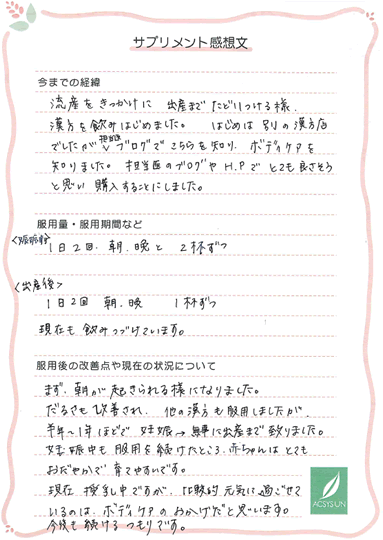 サプリメント感想文
今までの経緯
流産をきっかけに 出産までたどりつける様、
漢方を飲みはじめました。 はじめは別の漢方店
でしたが 担当医 ブログでこちらを知り、ボディケアを
知りました。担当医のブログや H.Pで とても良さそう
と思い 購入することにしました。
服用量・服用期間など
<妊娠前>
1日2回. 朝. 晩と 2杯ずつ
<出産後>
1日2回 朝. 晩 1杯ずつ
現在も 飲みつづけています。
服用後の改善点や現在の状況について
まず、朝が起きられる様になりました。
だるさも改善され、他の漢方も服用しましたが、
半年~1年ほどで 妊娠→無事に出産まで致りました。
妊娠中も服用を続けたところ、赤ちゃんはとても
おだやかで 育てやすいです。
現在 授乳中ですが、比較的 元気に過ごせて
いるのは、ボディケアのおかげだと思います。
今後も続けるつもりです。
ACSYSUN